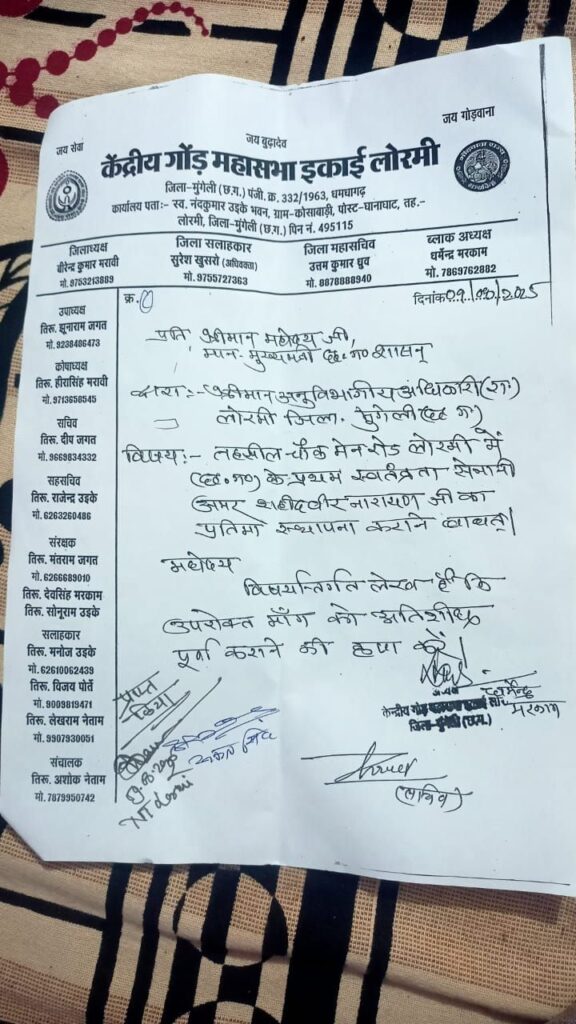 जय सेवा
जय बुढ़ादेव
जय गोंड़वाना
केंद्रीय गोंड़ महासभा इकाई लोरमी
जिला-मुंगेली (छ.ग.) पंजी. क्र. 332/1963, धमधागढ़
कार्यालय पताः- स्व. नंदकुमार उइके भवन, ग्राम-कोसाबाड़ी, पोस्ट-घानाघाट, तह.-
लोरमी, जिला-मुंगेली (छ.ग.) पिन नं. 495115
जिलाध्यक्ष
बीरेन्द्र कुमार मरावी
मो. 9753213889
जिला सलाहकार
सुरेश खुसरो (अधिवक्ता)
मो. 9755727363
जिला महासचिव
उत्तम कुमार ध्रुव
मो. 8878888940
ब्लाक अध्यक्ष
धर्मेन्द्र मरकाम
मो. 7869762882
उपाध्यक्ष
तिरू. झूनाराम जगत
मो. 9238486473
कोषाध्यक्ष
तिरू. हीरासिंह मरावी
मो. 9713658545
सचिव
तिरू. दीप जगत
मो. 9669834332
सहसचिव
तिरू. राजेन्द्र उइके
मो. 6263260486
संरक्षक
तिरू. मंतराम जगत
मो. 6266689010
तिरू. देवसिंह मरकाम
तिरू. सोनूराम उइके
सलाहकार
तिरू. मनोज उइके
मो. 62610062439
तिरू. विजय पोर्ते
मो. 9009819471
तिरू. लेखराम नेताम
मो. 9907930051
संचालक
तिरू. अशोक नेताम
मो. 7879950742
क्र.
दिनांक 2025
प्रति श्रीमान महोदय जी,
मान. मुख्यमंत्री छ.ग० शासन्
द्वारा:- श्रीमान अनुविभागीय अधिकारी (रा.)
लोरमी जिला. मुंगेली (छ.ग.)
विषय:- तहसील चौक मेनरोड लोरमी में
(छ.ग०) के प्रथम स्वतंत्रता सेनानी
अमर शहीद वीर नारायण जी का
प्रतिमा स्थापना कराने बाबत्।
महोदय
विषयान्तर्गत लेख है कि
उपरोक्त माँग को अतिशीघ्र
पूर्ण कराने की कृपा करें।
अध्यक्ष
केन्द्रीय गोंड़ महासभा इकाई
जिला-मुंगेली (छ.ग.)
धर्मेन्द्र
मरकाम
(सचिव)
प्राप्त
किया
NT Lormi